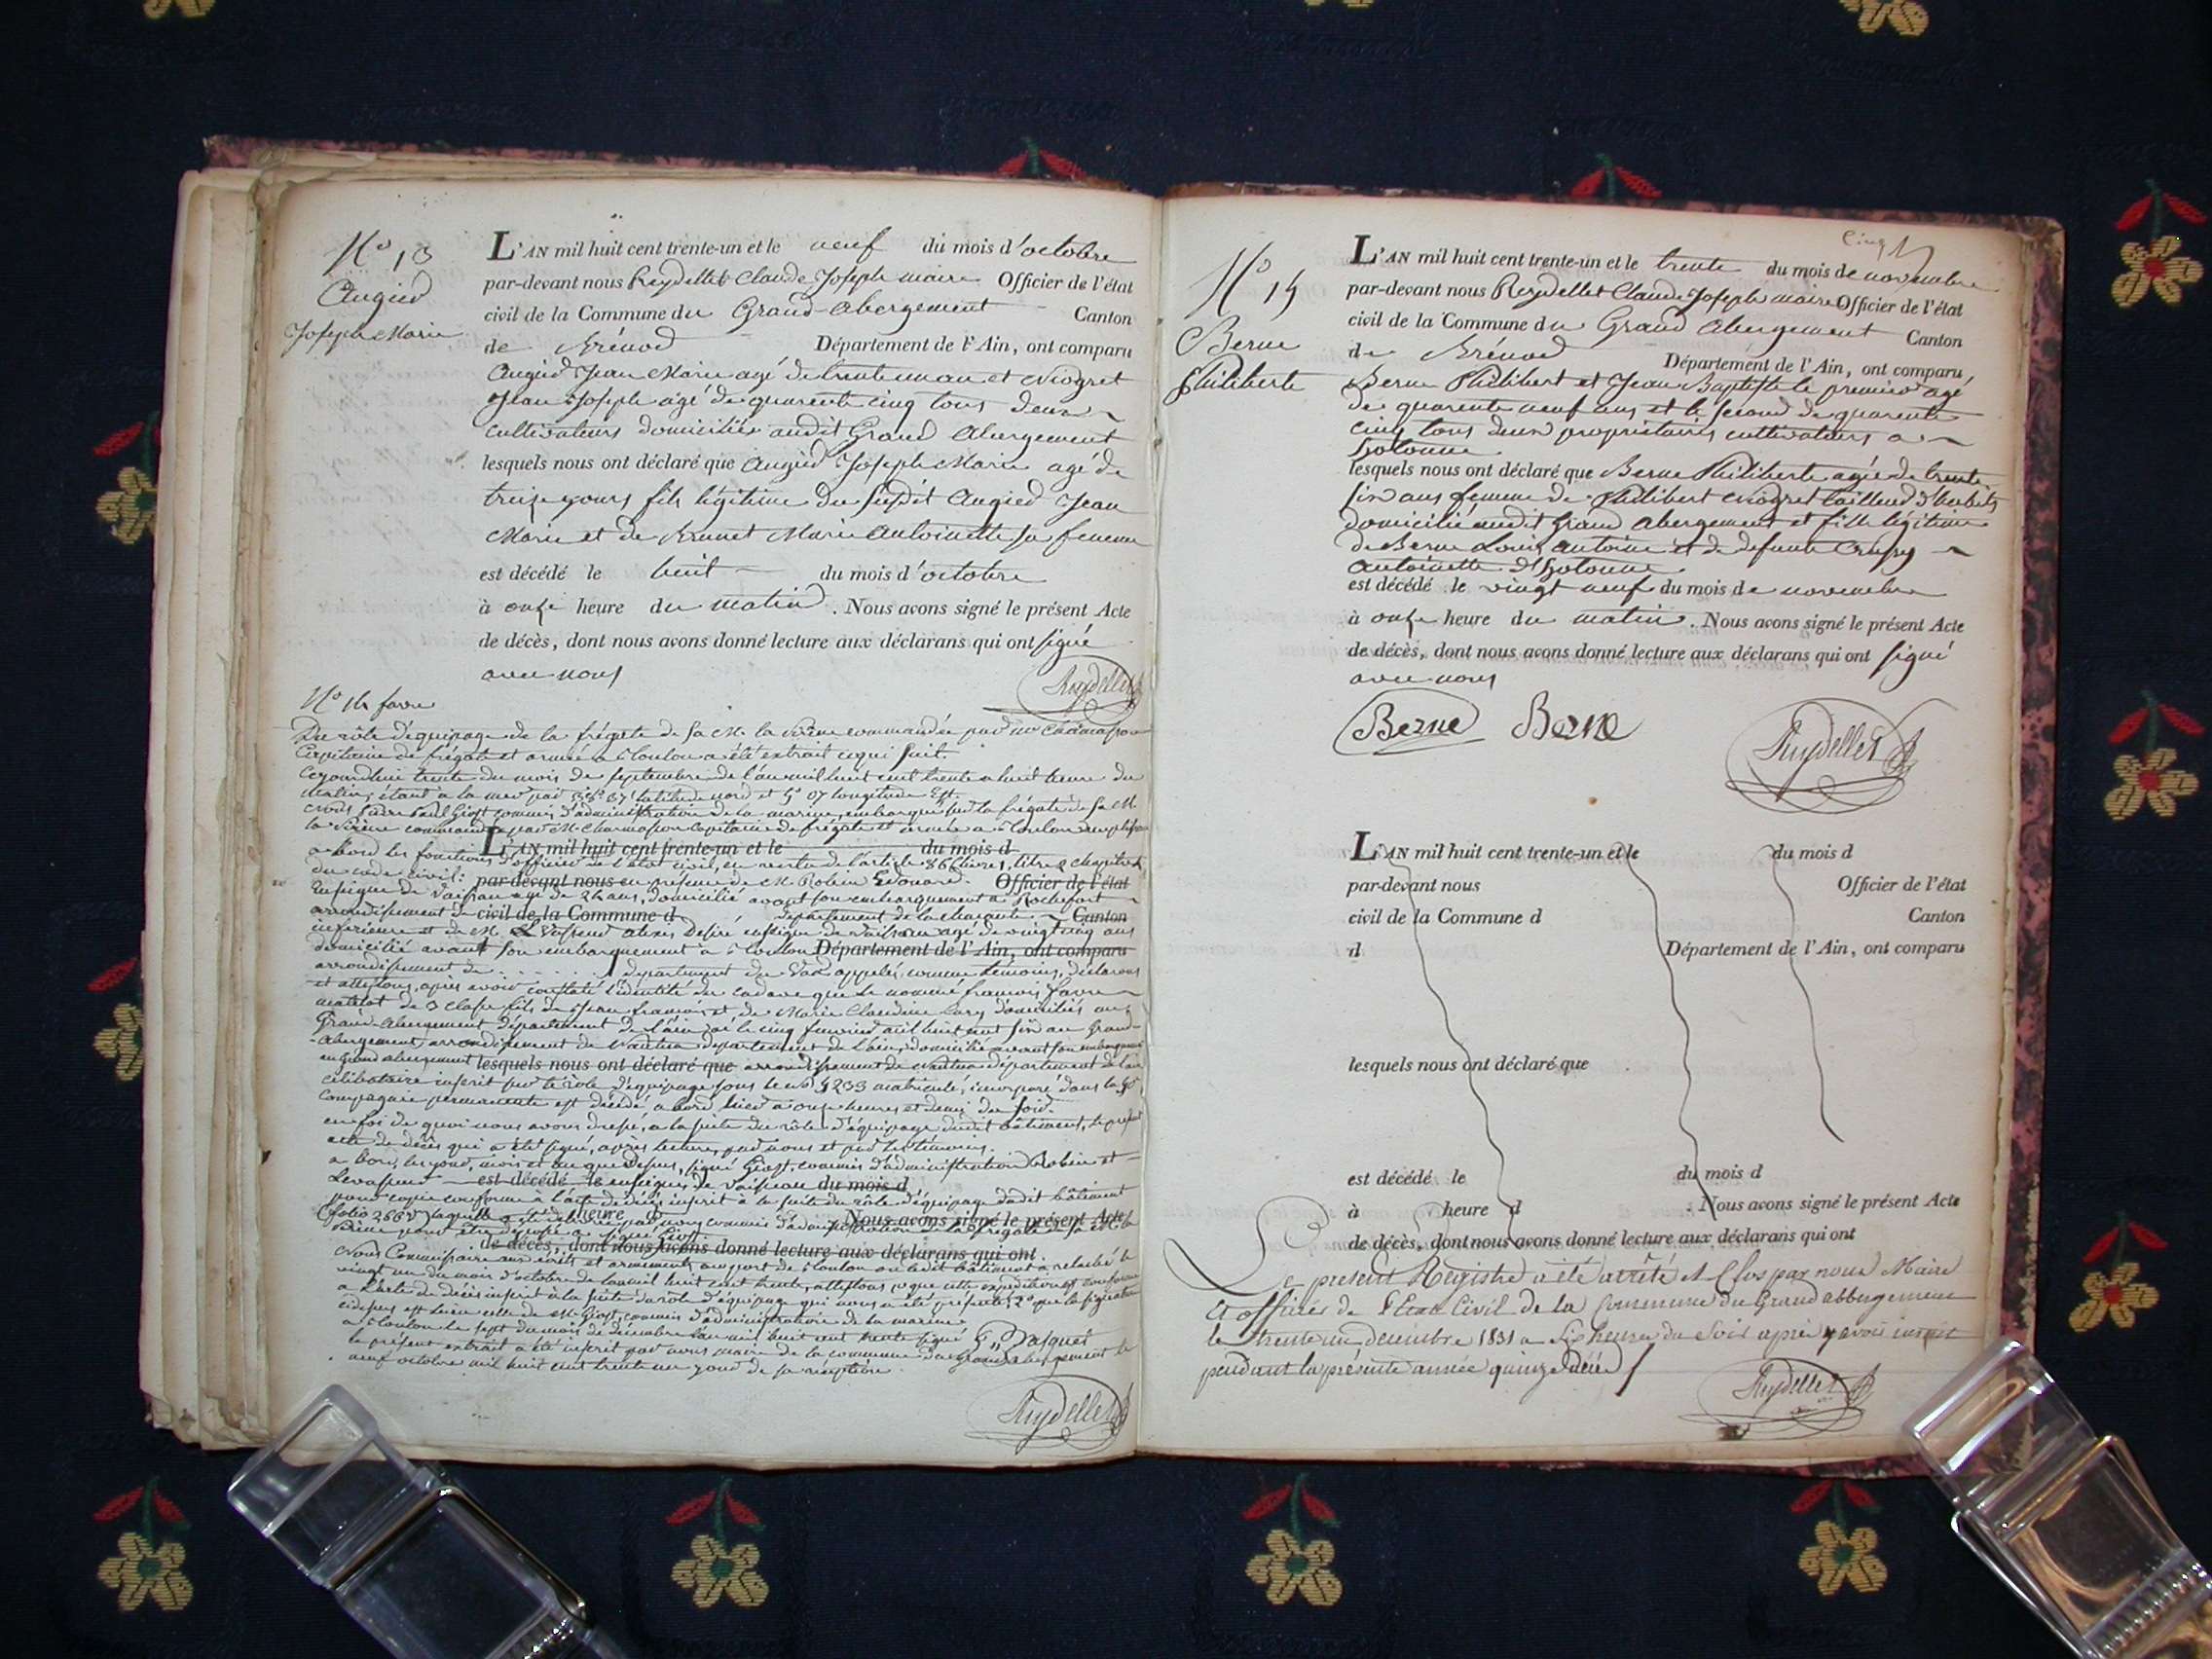 N° 13
Augier
Joseph Marie
L'AN mil huit cent trente-un et le neuf du mois d'octobre
par-devant nous Reydellet Claude Joseph maire Officier de l'état
civil de la Commune du Grand-abergement Canton
de Brénod Département de l'Ain, ont comparu
Augier Jean Marie agé de trente un an et Niogret
Jean Joseph agé de quarente cinq tous deux
cultivateurs domiciliés audit Grand Abergement
lesquels nous ont déclaré que Augier Joseph Marie agé de
treize jours fils légitime du susdit Augier Jean
Marie et de Brunet Marie Antoinette sa femme
est décédé le huit du mois d'octobre
à onze heure du matin. Nous avons signé le présent Acte
de décès, dont nous avons donné lecture aux déclarans qui ont signé
avec nous
Reydellet
N° 14 favre
Du rôle d'équipage de la frégate de Sa M. la Sirène commandée par
Capitaine de frégate et armée a Toulon a été extrait ce qui suit.
Cejourdhui trente du mois de septembre de l'an mil huit cent trente a huit heure du
matin, étant a la mer par 38° 37' latitude nord et 5° 07 longitude Est.
Nous commis d'administration de la marine, embarqué sur la frégate de Sa M.
la Sirène commandée par M. Charmasson Capitaine de frégate et armée a Toulon
a bord les fonctions d'officier de l'état civil, en vertu de l'article 86 livre 1, titre 2 chapitre
L'AN mil huit cent trente-un et le du mois d
du code civil: en présence de M. Robin Edouard
par-devant nous Officier de l'état
enseigne de Vaisseau agé de 24 ans, domicilié avant son embarquement a Rochefort
arrondissement de departement de la charente
civil de la Commune d Canton
inferieure et de M. Levasseur alexis Désiré enseigne de vaisseau agé de vingt cinq ans
domicilié avant son embarquement a Toulon
Département de l'Ain, ont comparu
arrondissement de . . . . . . departement du Var appelés comme témoins, déclarons
et attestons, après avoir constaté l'identité du cadavre que le nommé françois favre
matelot de 3 classe fils de Jean françois et de Marie Claudine domiciliés au
Grand-abergement département de l'ain né le cinq fevrier mil huit cent six au Grand-
abergement, arrondissement de Nantua departement de l'ain, domicilié avant son embarquement
au Grand abergement arrondissement de Nantua département de l'ain
lesquels nous ont déclaré que
célibataire inscrit sur le rôle d'équipage sous le n° 4233 matricule, incorporé dans la
Compagnie permanente est décédé, a bord hier a onze heures et demi du soir.
en foi de quoi nous avons dressé, a la suite du rôle d'équipage dudit bâtiment, le présent
acte de décès qui a été signé, après lecture, par nous et par les témoins.
a bord, les jour, mois et an que dessus, signé commis d'administration Robin et
Levasseur enseignes de vaisseau
est décédé le du mois d
pour copie conforme à l'acte de décès inscrit à la suite du rôle d'équipage dudit bâtiment
heure d Nous avons signé le présent Acte
de décès, dont nous avons donné lecture aux déclarans qui ont
Nous Commissaire aux revues et armements au port de Toulon ou ledit bâtiment a relaché le
vingt un du mois d'octobre de l'an mil huit cent trente, attestons 1° que cette expédition est conforme
a l'acte de décès inscrit à la suite du rôle d'équipage qui nous a été présenté, 2° que la signature
cidessus est bien celle de M. commis d'administration de la marine
a Toulon le sept du mois de décembre l'an mil huit cent trente signé Pasquet
le présent extrait a été inscrit par nous maire de la commune du Grand abergement le
neuf octobre mil huit cent trente un jour de sa réception.
Reydellet
Cinq
N° 15
Berne
Philiberte
L'AN mil huit cent trente-un et le trente du mois de novembre
par-devant nous Reydellet Claude Joseph maire Officier de l'état
civil de la Commune du Grand Abergement Canton
de Brénod Département de l'Ain, ont comparu
Berne Philibert et Jean Baptiste le premier agé
de quarente neuf ans et le second de quarente
cinq tous deux propriétaires cultivateurs a
hotonne
lesquels nous ont déclaré que Berne Philiberte agée de trente
six ans femme de Philibert Niogret tailleur d'habits
domicilié audit Grand Abergement et fille légitime
de Berne Louis antoine et de défunte
antoinette d'hotonne.
est décédé le vingt neuf du mois de novembre
à onze heure du matin. Nous avons signé le présent Acte
de décès, dont nous avons donné lecture aux déclarans qui ont signé
avec nous
Berne Berne
Reydellet
L'AN mil huit cent trente-un et le du mois d
par-devant nous Officier de l'état
civil de la Commune d Canton
d Département de l'Ain, ont comparu
lesquels nous ont déclaré que
est décédé le du mois d
à heure d . Nous avons signé le présent Acte
de décès, dont nous avons donné lecture aux déclarans qui ont
Le present Registre a été arrêté et Clos par nous Maire
et officier de l'Etat Civil de la Commune du Grand abbergement
le trente un decembre 1831 a Six heures du Soir après y avoir inscrit
pendant la présente année quinze décès
Reydellet